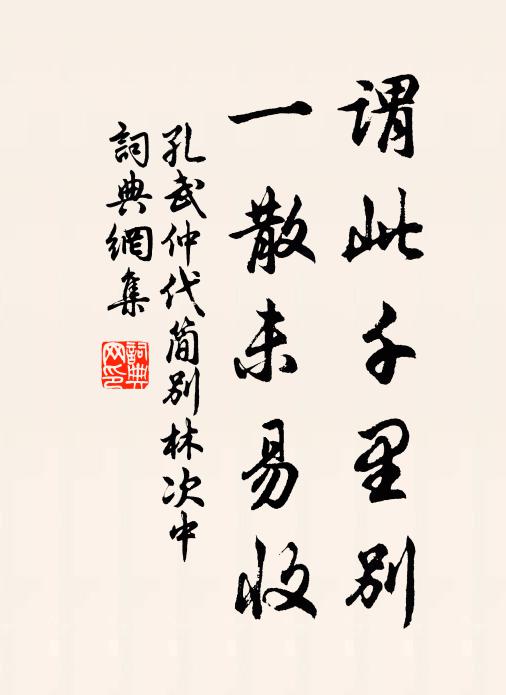 謂此千里別
一散未易收
孔武仲代簡別林次中
詞典網集
詞典
网印